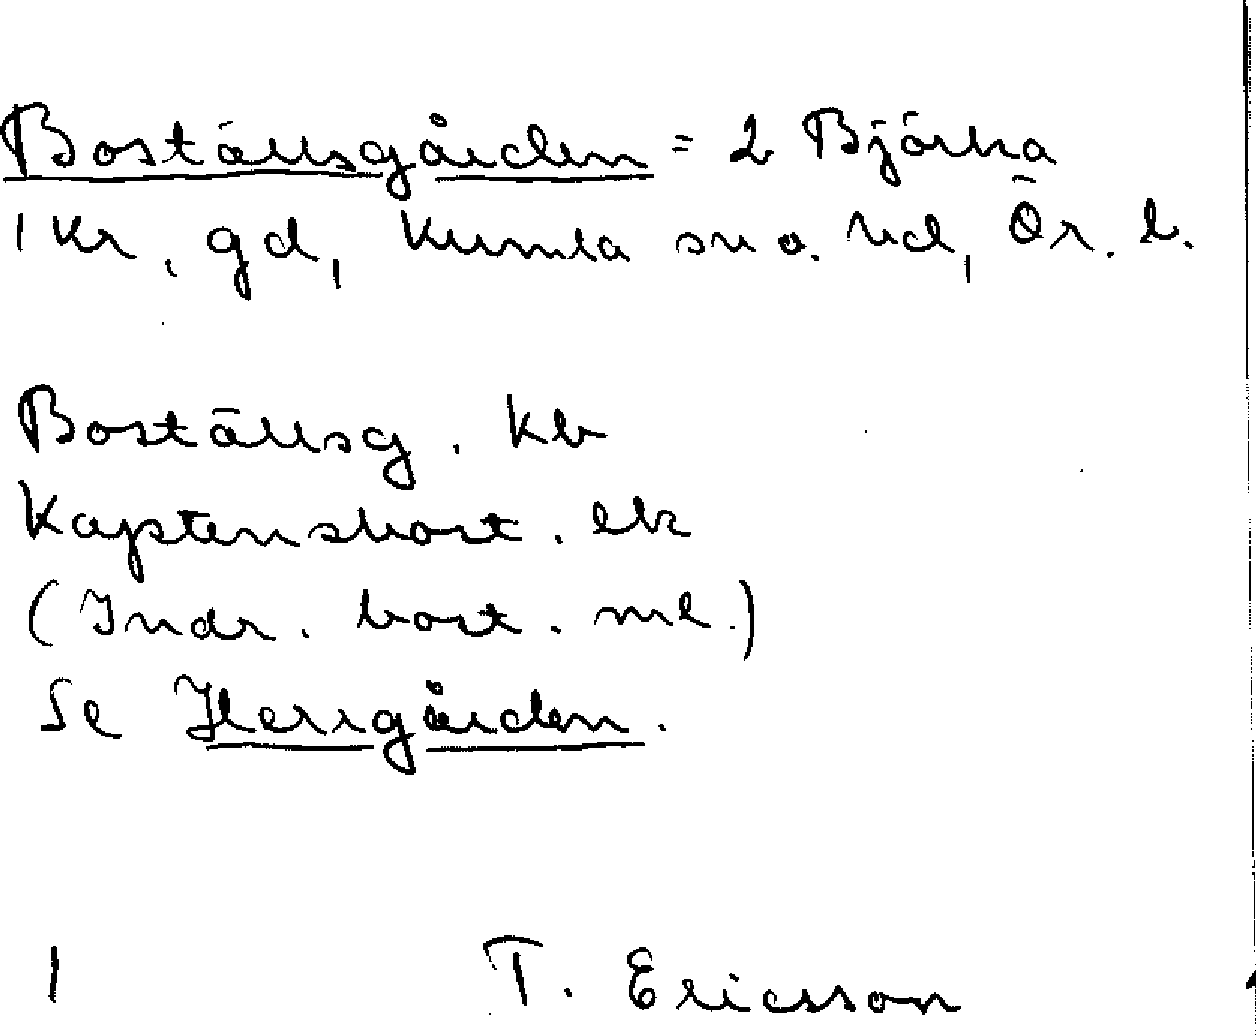 Boställsgården = 2 Björka
1 Kr, gd, Kumla sn o. hd, Ör. l.
Boställsg. kb
Kaptensbost. ek
(Indr. bost. ml.)
Se Herrgården.
1 T. Ericson